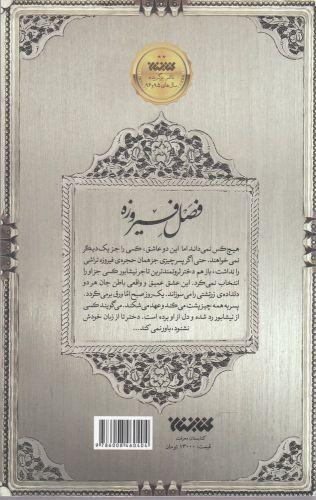 ناشر برگزیده
سال‌های ۹۵ و ۹۶
فصل فیروزه
هیچ‌کس نمی‌داند اما این دو عاشق، کسی را جز یک‌دیگر
نمی‌خواهند. حتی اگر پسر چیزی جز همان حجره‌ی فیروزه تراشی
را نداشت، باز هم دختر ثروتمندترین تاجر نیشابور کسی جز او را
انتخاب نمی‌کرد. این عشق عمیق و واقعی باطن جان هر دو
دلداده‌ی زرتشتی را می‌سوزاند. یک روز صبح امّا ورق برمی‌گردد.
پسر به همه چیز پشت می‌کند و عهد می‌شکند. می‌گویند کسی
از نیشابور رد شده و دل از او برده است. دختر تا از زبان خودش
نشنود، باور نمی‌کند...
کتابستان معرفت
قیمت: ۱۳۰۰۰ تومان
9 786008 460404